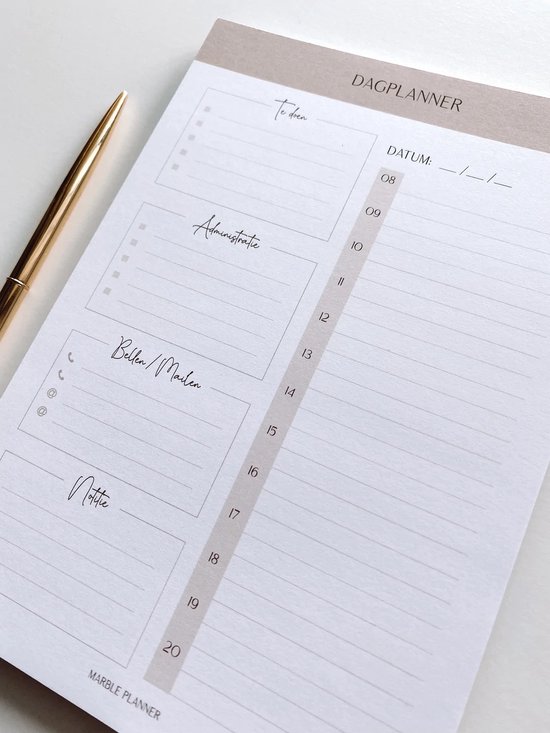 DAGPLANNER
DATUM: __/__/__
Te doen
Administratie
Bellen / Mailen
@
@
Notitie
08
09
10
11
12
13
14
15
16
17
18
19
20
MARBLE PLANNER